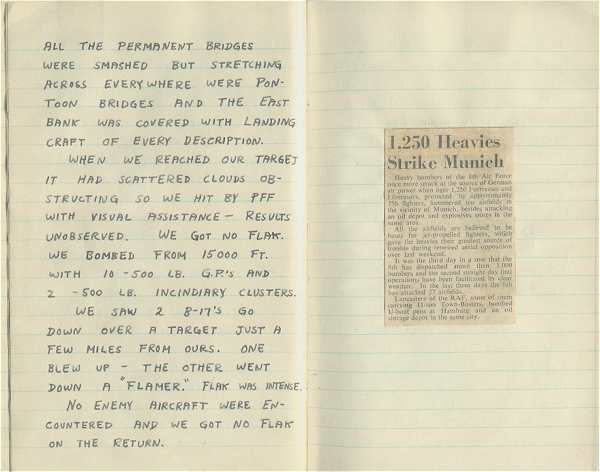 ALL THE PERMANENT BRIDGES
WERE SMASHED BUT STRETCHING
ACROSS EVERYWHERE WERE PON-
TOON BRIDGES AND THE EAST
BANK WAS COVERED WITH LANDING
CRAFT OF EVERY DESCRIPTION.
WHEN WE REACHED OUR TARGET
IT HAD SCATTERED CLOUDS OB-
STRUCTING SO WE HIT BY PFF
WITH VISUAL ASSISTANCE - RESULTS
UNOBSERVED. WE GOT NO FLAK.
WE BOMBED FROM 15000 FT.
WITH 10 -500 LB. G.P.'S AND
2 -500 LB. INCINDIARY CLUSTERS.
WE SAW 2 B-17'S GO
DOWN OVER A TARGET JUST A
FEW MILES FROM OURS. ONE
BLEW UP - THE OTHER WENT
DOWN A "FLAMER." FLAK WAS INTENSE.
NO ENEMY AIRCRAFT WERE EN-
COUNTERED AND WE GOT NO FLAK
ON THE RETURN.
1,250 Heavies
Strike Munich
Heavy bombers of the 8th Air Force
once more struck at the source of German
air power when upwards 1,250 Fortresses and
Liberators, protected by approximately
750 fighters, hammered ten airfields in
the vicinity of Munich, besides attacking
an oil depot and explosives stores in the
same area.
All the airfields are believed to be
bases for jet-propelled fighters, which
gave the heavies their greatest source of
trouble during renewed aerial opposition
over last weekend.
It was the third day in a row that the
8th has dispatched more than 1,000
bombers and the second straight day that
operations have been facilitated by clear
weather. In the last three days the 8th
has attacked 27 airfields.
Lancasters of the RAF, some of them
carrying 11-ton Town-Busters, bombed
U-boat pens at Hamburg and an oil
storage depot in the same city.